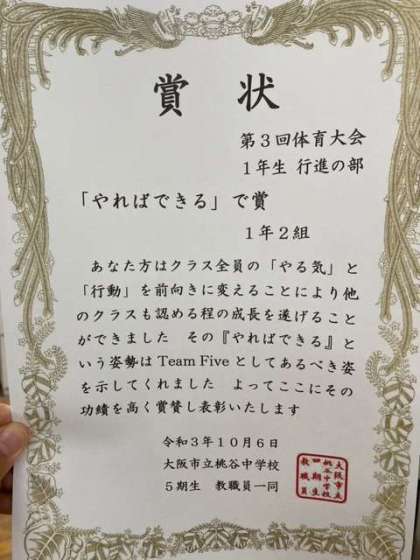 賞状
第3回体育大会
1年生 行進の部
「やればできる」で賞
1年2組
あなた方はクラス全員の「やる気」と
「行動」を前向きに変えることにより他
のクラスも認める程の成長を遂げること
ができました　その『やればできる』と
いう姿勢はTeam Fiveとしてあるべき姿
を示してくれました　よってここにその
功績を高く賞賛し表彰いたします
令和3年10月6日
大阪市立桃谷中学校
5期生　教職員一同
大阪市立
桃谷中学校
四期生
教職員